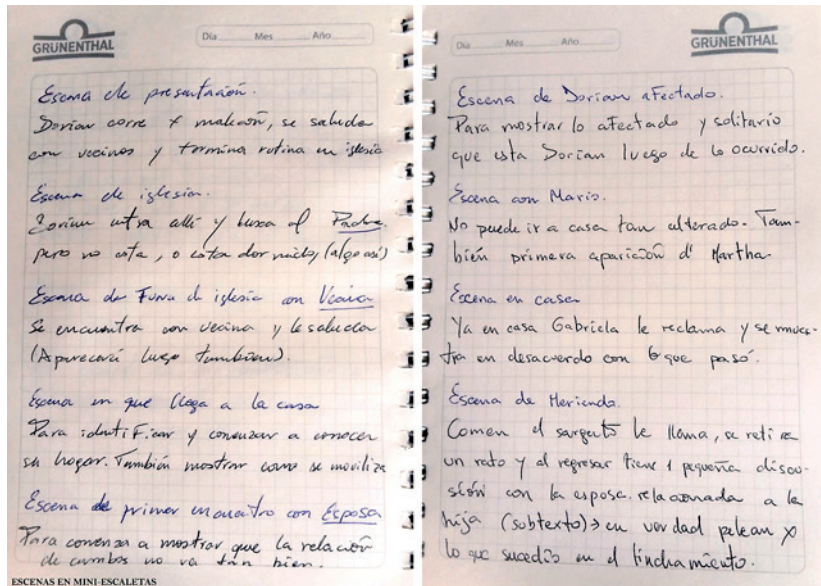 GRÜNENTHAL
Día Mes Año
Escena de presentación.
Dorian corre x malecón, se saluda
con vecinos y termina rutina en iglesia
Escena de iglesia.
Dorian entra allí y busca al Padre
pero no esta, o esta dormido, (algo así)
Escena de Fuera de iglesia con Vecina
Se encuentra con vecina y le saluda
(Aparecerá luego tambien).
Escena en que llega a la casa
Para identificar y comenzar a conocer
su hogar. También mostrar como se moviliza
Escena de primer encuentro con Esposa
Para comenza a mostrar que la relación
de ambos no va tan bien.
ESCENAS EN MINI-ESCALETAS
Día Mes Año
GRÜNENTHAL
Escena de Dorian afectado.
Para mostrar lo afectado y solitario
que esta Dorian luego de lo ocurrido.
Escena con Mario.
No puede ir a casa tan alterado. Tam-
bién primera aparición d' Martha.
Escena en casa
Ya en casa Gabriela le reclama y se mues-
tra en desacuerdo con lo que pasó.
Escena de Merienda.
Comen el sargento le llama, se retira
un rato y al regresar tiene 1 pequeña discu-
sión con la esposa relacionada a la
hija (subtexto) → en verdad pelean x
lo que sucedió en el linchamiento.